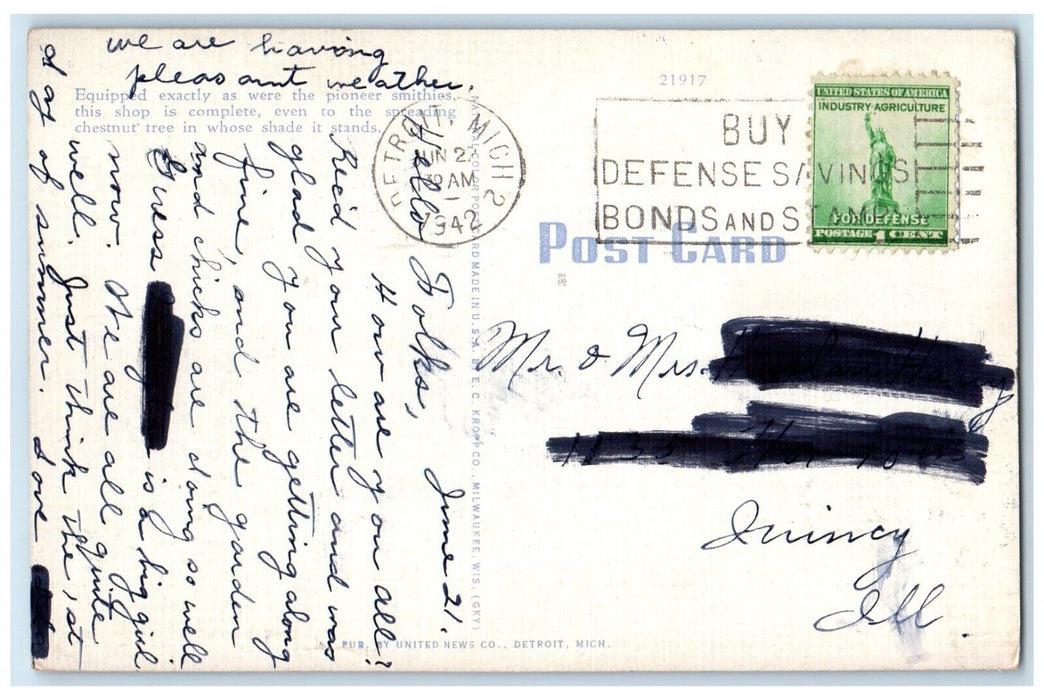 we are having
pleasant weather.
Equipped exactly as were the pioneer smithies,
this shop is complete, even to the spreading
chestnut tree in whose shade it stands.
June 21.
Hello Folks,
How are you all?
Rec'd your letter and was
glad you are getting along
fine, and the garden
and chicks are doing so well.
Guess is a big girl
now. We are all quite
well. Just think the, st
day of summer. Love
NATURAL COLOR POST CARD MADE IN U.S.A. BY E. C. KROPP CO., MILWAUKEE, WIS. (GKY)
PUB. BY UNITED NEWS CO., DETROIT, MICH.
21917
DETROIT, MICH. 2
JUN 22
AM
1942
BUY
DEFENSE SAVINGS
BONDS AND STAMPS
UNITED STATES OF AMERICA
INDUSTRY-AGRICULTURE
FOR DEFENSE
POSTAGE 1 CENT
POST CARD
Mr. & Mrs.
Quincy
Ill.